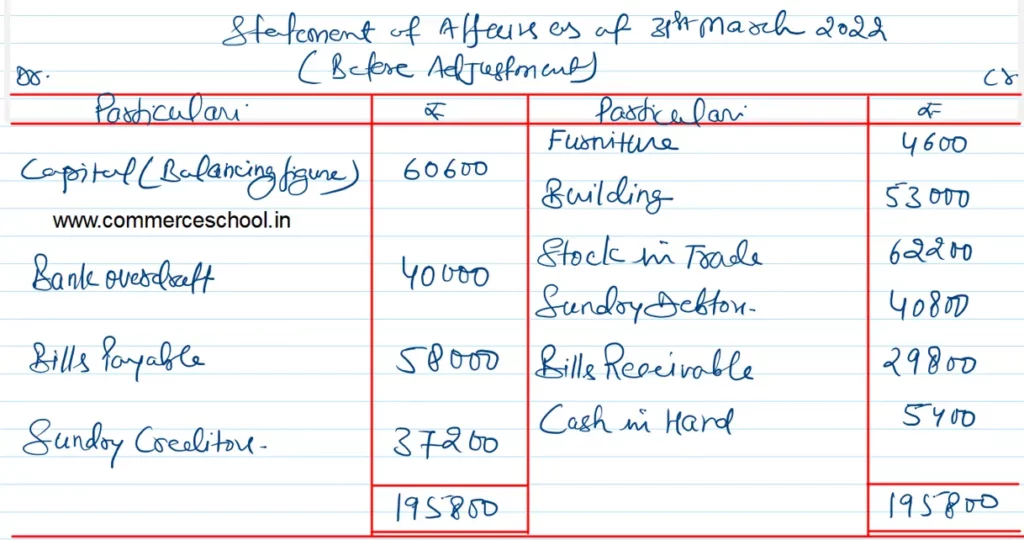 Statement of Affairs as at 31st March 2022
(Before Adjustment)
Dr. Cr
Particulars ₹ Particulars ₹
Furniture 4600
Capital (Balancing figure) 60600
Building 53000
www.commerceschool.in
Stock in Trade 62200
Bank overdraft 40000
Sundry Debtors 40800
Bills Payable 58000 Bills Receivable 29800
Cash in Hand 5400
Sundry Creditors 37200
195800 195800